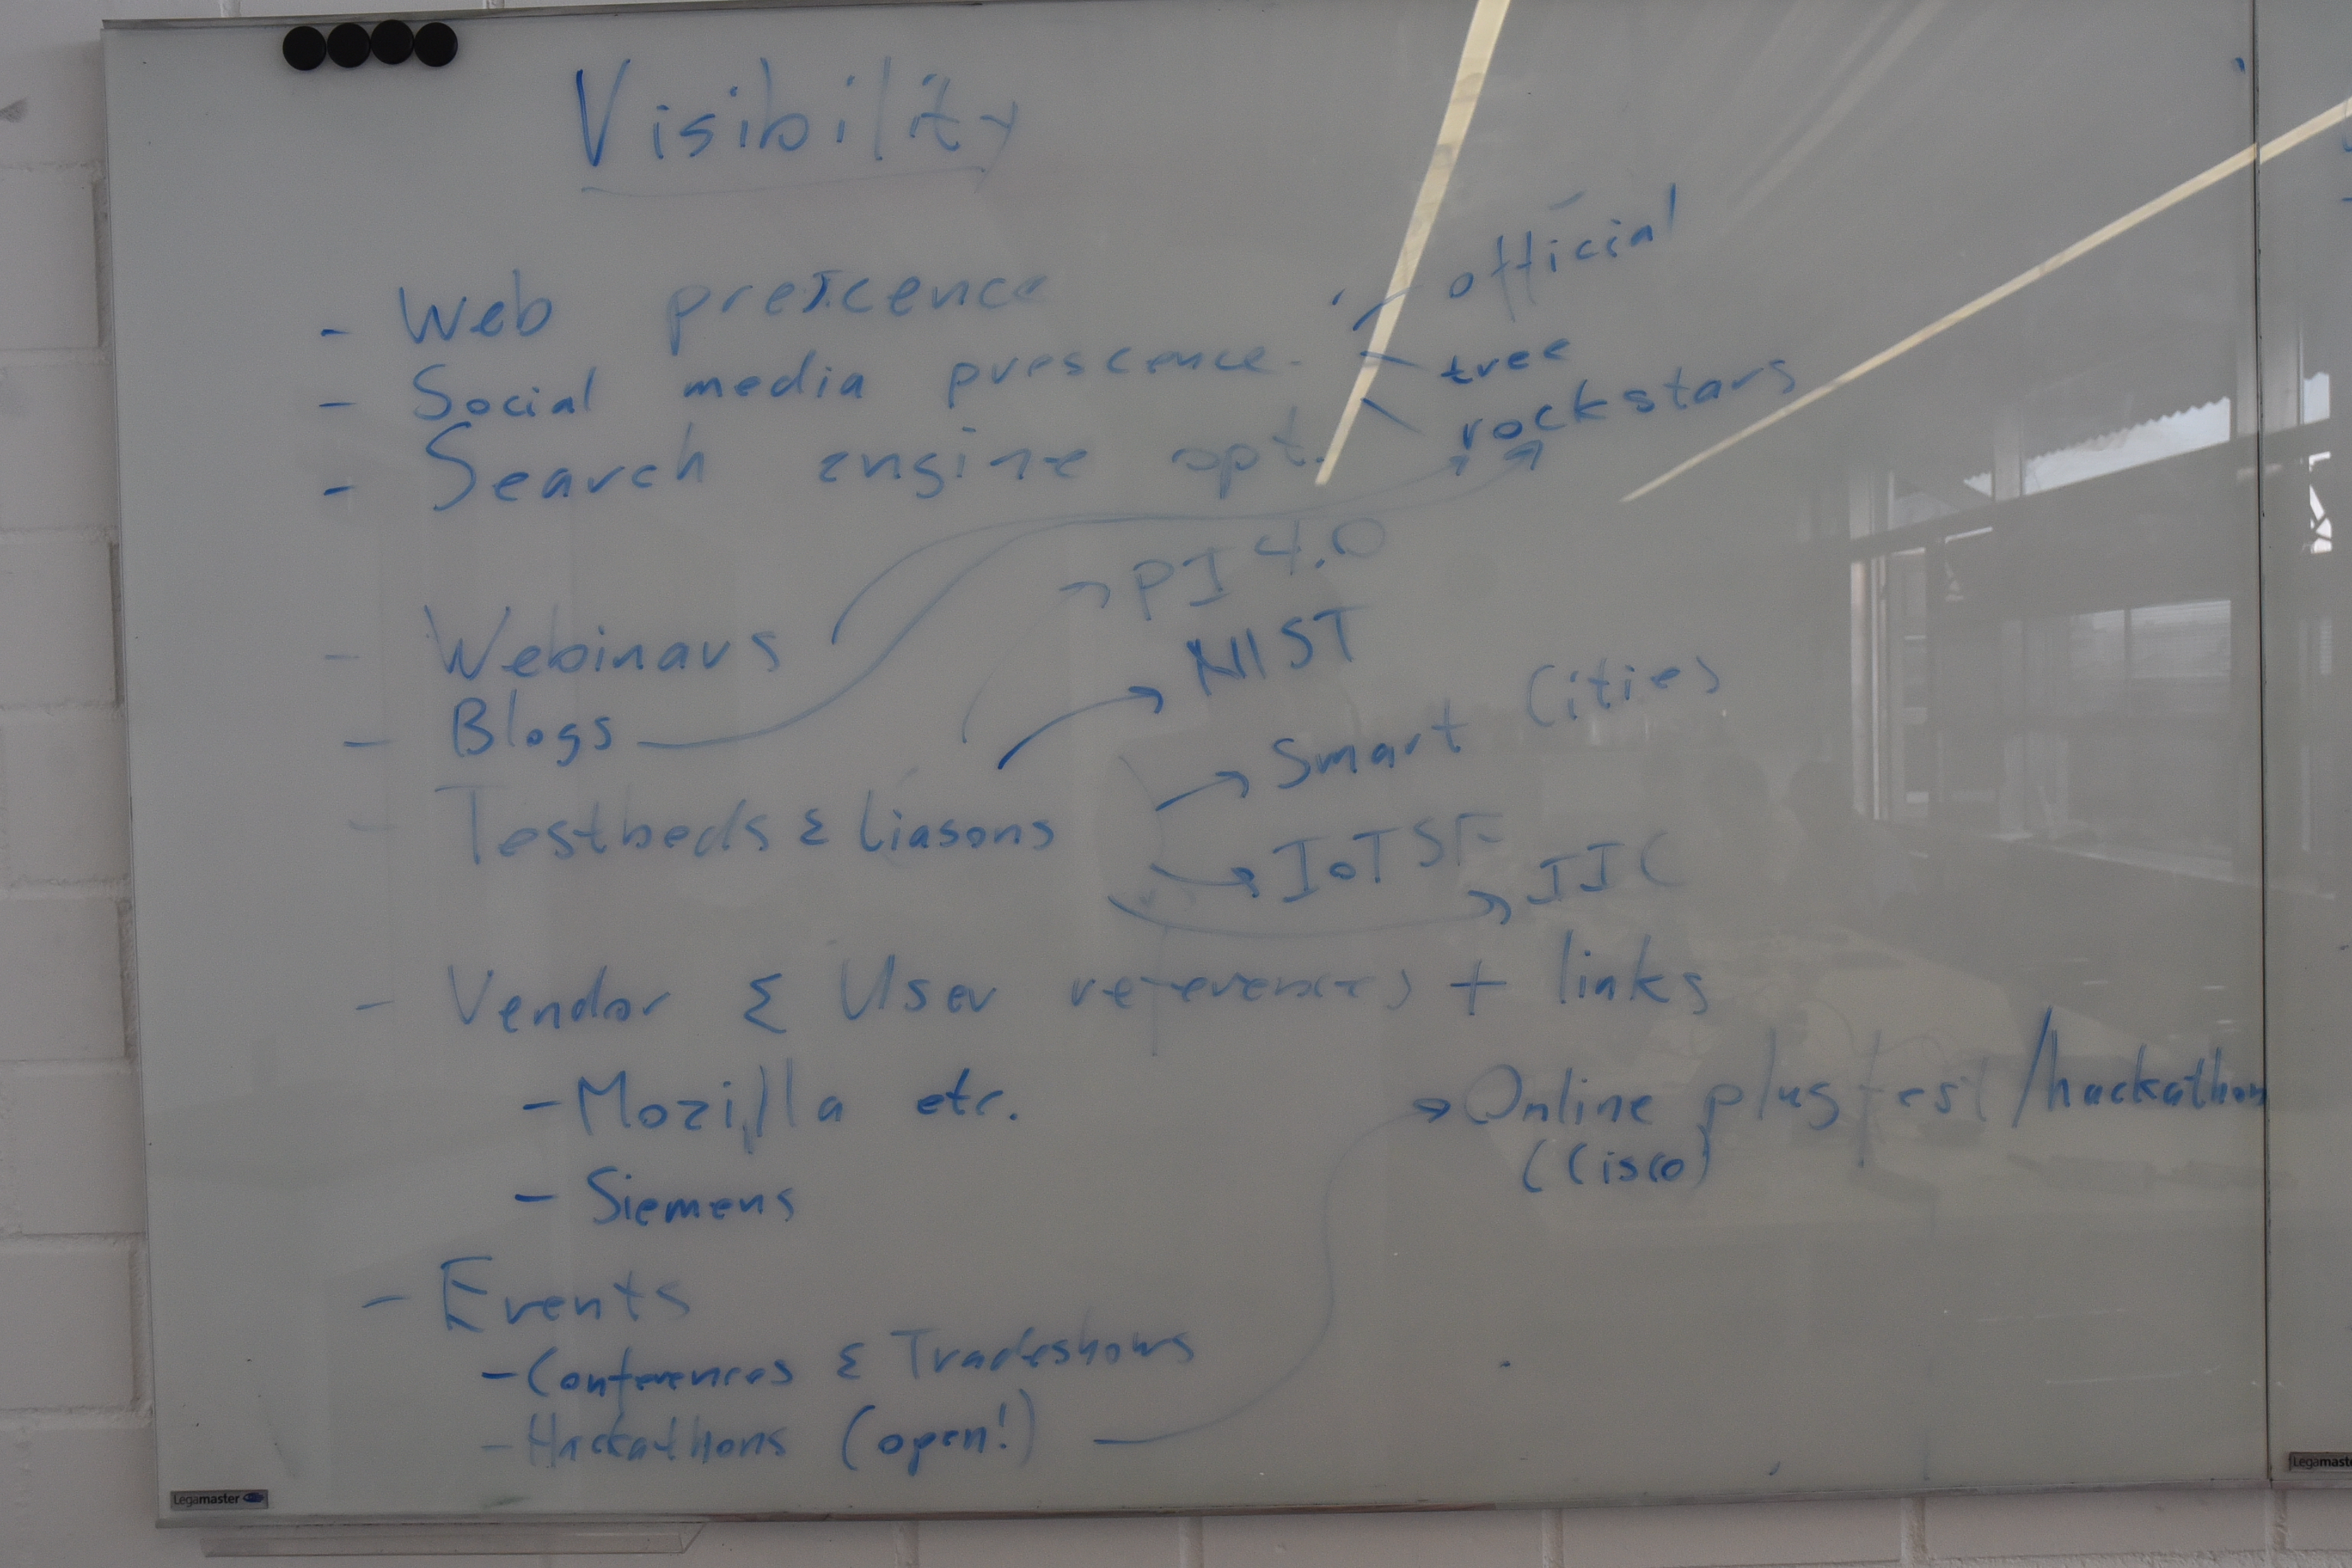 Visibility
- Web prescence
- Social media prescence - official
tree
rockstars
- Search engine opt.
- Webinars
- Blogs
- Testbeds & Liasons
PI 4.0
NIST
Smart Cities
IoTSF
IIC
- Vendor & User references + links
- Mozilla etc.
- Siemens
- Events
- Conferences & Tradeshows
- Hackathons (open!)
Online plugfest/hackathon
(Cisco)
Legamaster
Legamaste